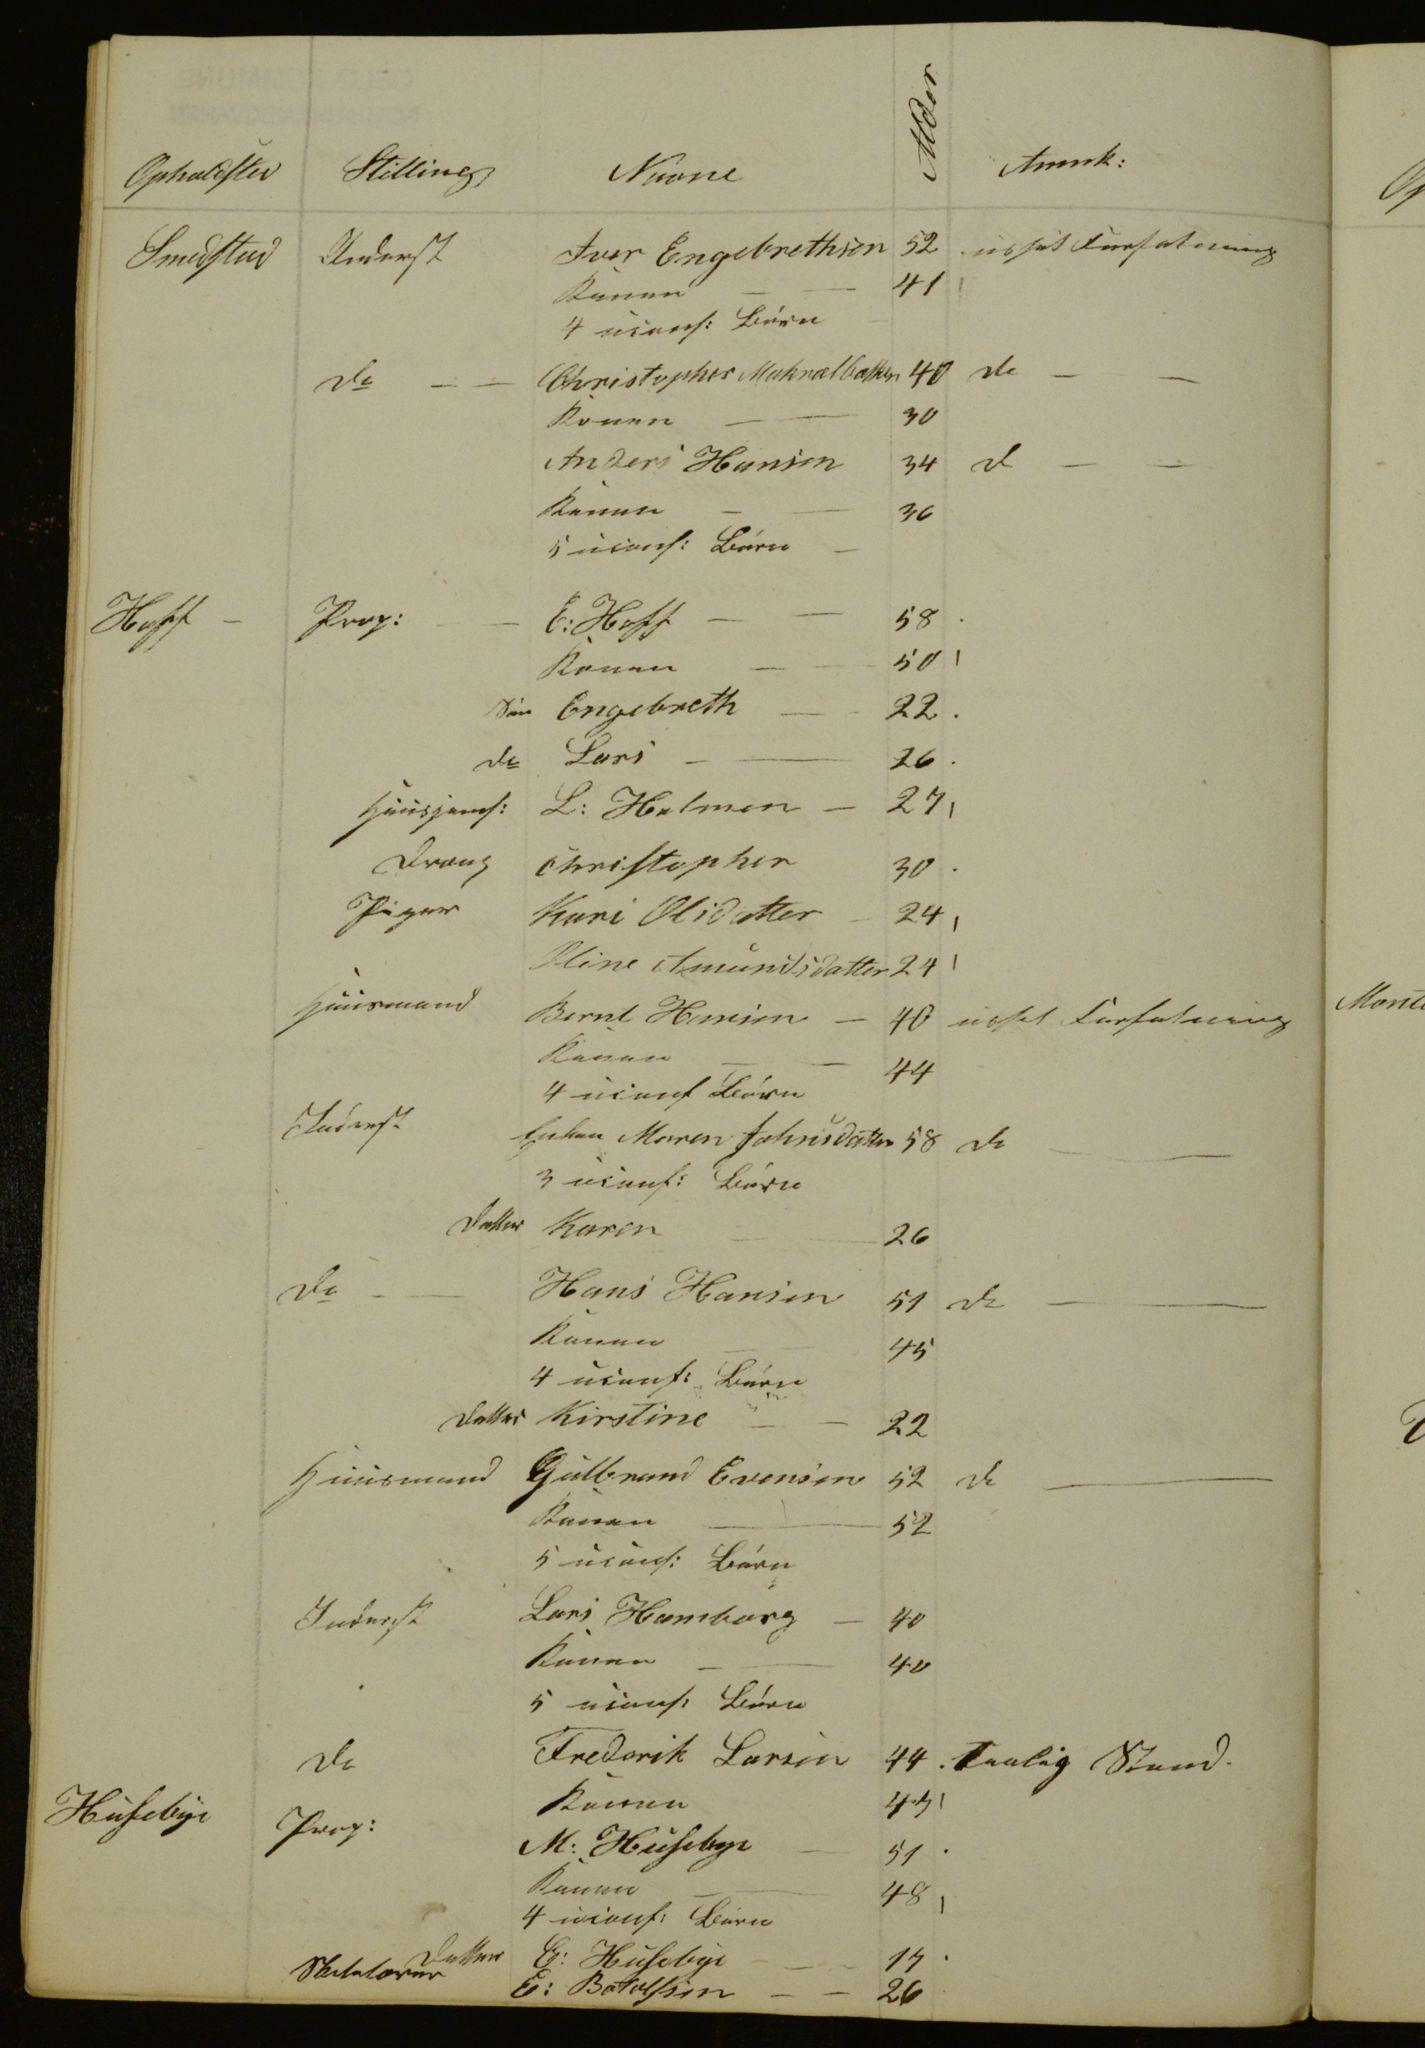 Opholdsted Stilling Navne Alder Anmk:
Smedstad Inderst Iver Engebrethsen 52 ussel Forfatning
Konen — — 41
4 uconf: Børn
do — — Christopher 40 do — —
Konen — 30
Anders Hansen 34 d — —
Konen — — 36
5 uconf: Børn —
Hoff — Prop: — — E: Hoff — — 58
Konen — — 50
Søn Engebreth — 22
do Lars — — 26
Huusjomf: L: Holmen — 27
Dreng Christopher 30
Piger Kari Olsdatter — 24
Oline Amundsdatter 24
Huusmand Bernt Hansen — 40 ussel Forfatning
Konen — — 44
4 uconf Børn
Inderst Enken Maren Johnsdatter 58 do —
3 uconf: Børn
Datter Karen — 26
do — — Hans Hansen 51 do —
Konen — — 45
4 uconf: Børn
Datter Kirstine — — 22
Huusmand Gulbrand Evensen 52 do —
Konen — 52
5 uconf: Børn
Inderst Lars Hamborg — 40
Konen — — 40
5 uconf: Børn
do Frederik Larsen 44 Taalig Stand.
Konen 47
Husebye Prop: M: Husebye — 51
Konen — — 48
4 uconf: Børn
Datter G: Husebye — — 17
Skolelærer E: Botolfsen — — 26